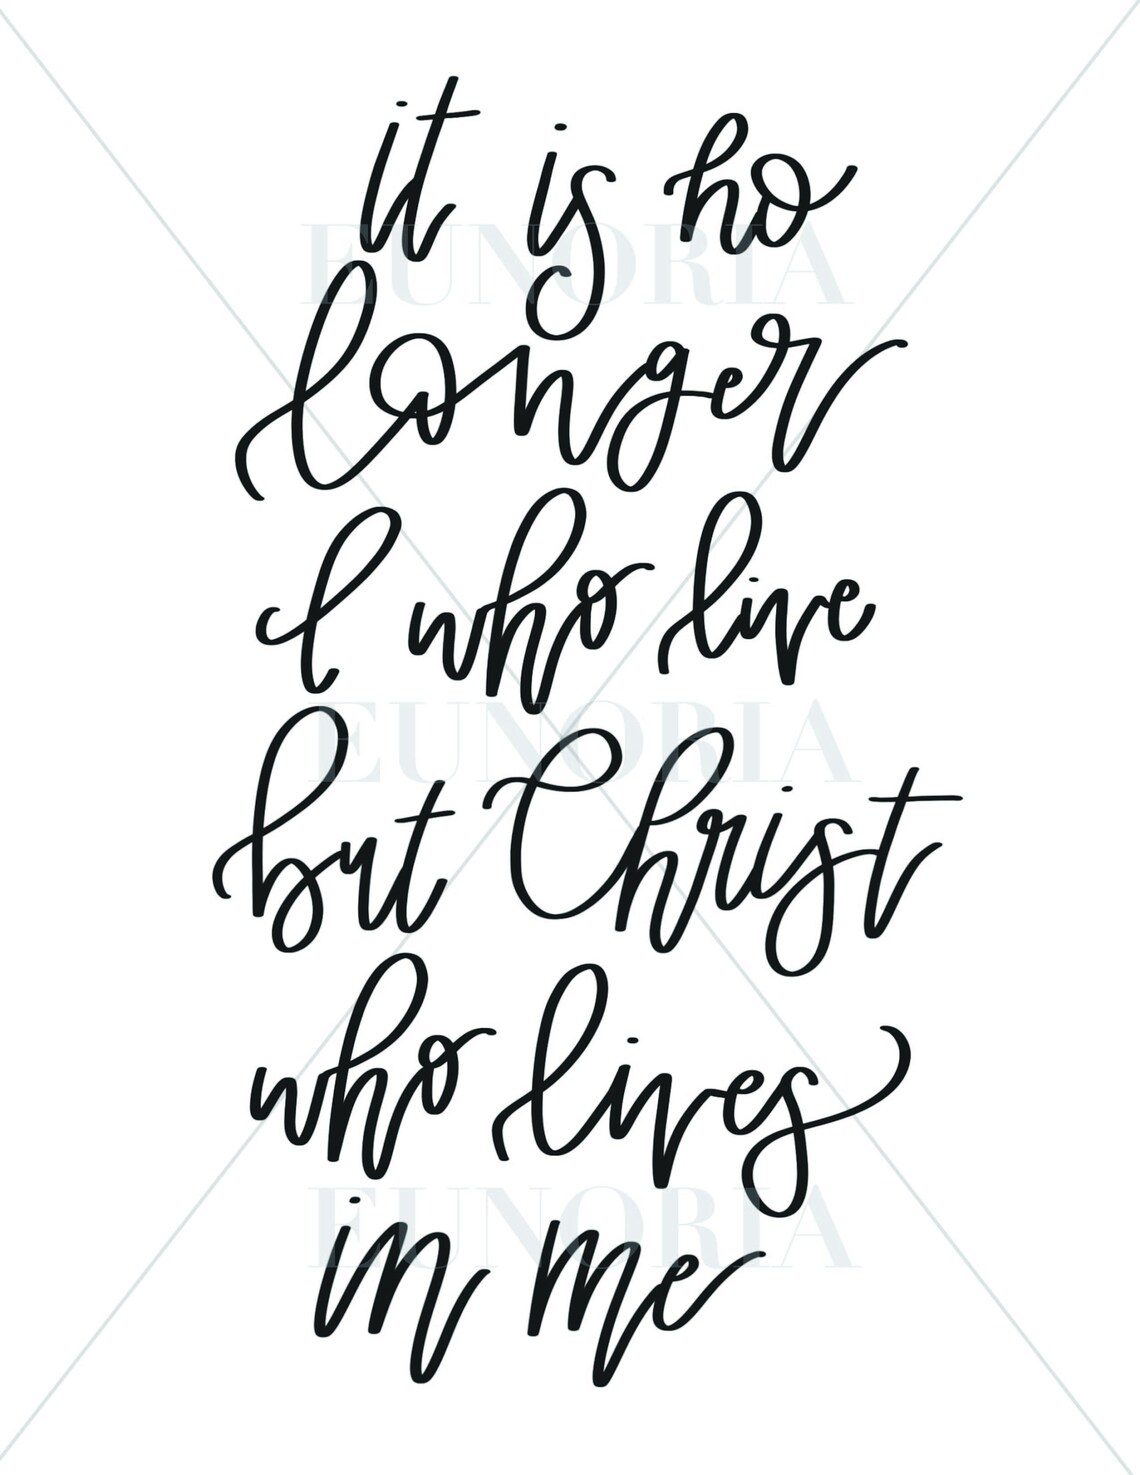 it is no
EUNORIA
longer
I who live
EUNORIA
but Christ
who lives
EUNORIA
in me